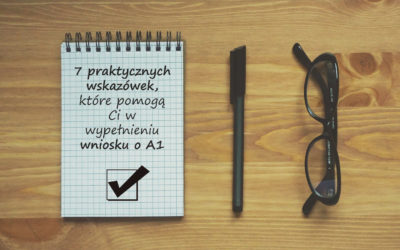 7 praktycznych
wskazówek,
które pomogą
Ci w
wypełnieniu
wniosku o A1